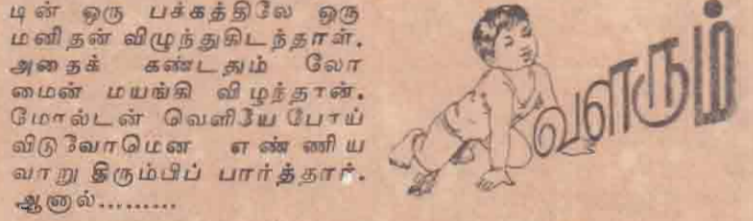 டின் ஒரு பக்கத்திலே ஒரு
மனிதன் விழுந்துகிடந்தாள்.
அதைக் கண்டதும் லோ
மைன் மயங்கி விழந்தான்.
மோல்டன் வெளியே போய்
விடுவோமென எண்ணிய
வாறு திரும்பிப் பார்த்தார்.
ஆனால்.........
வளரும்